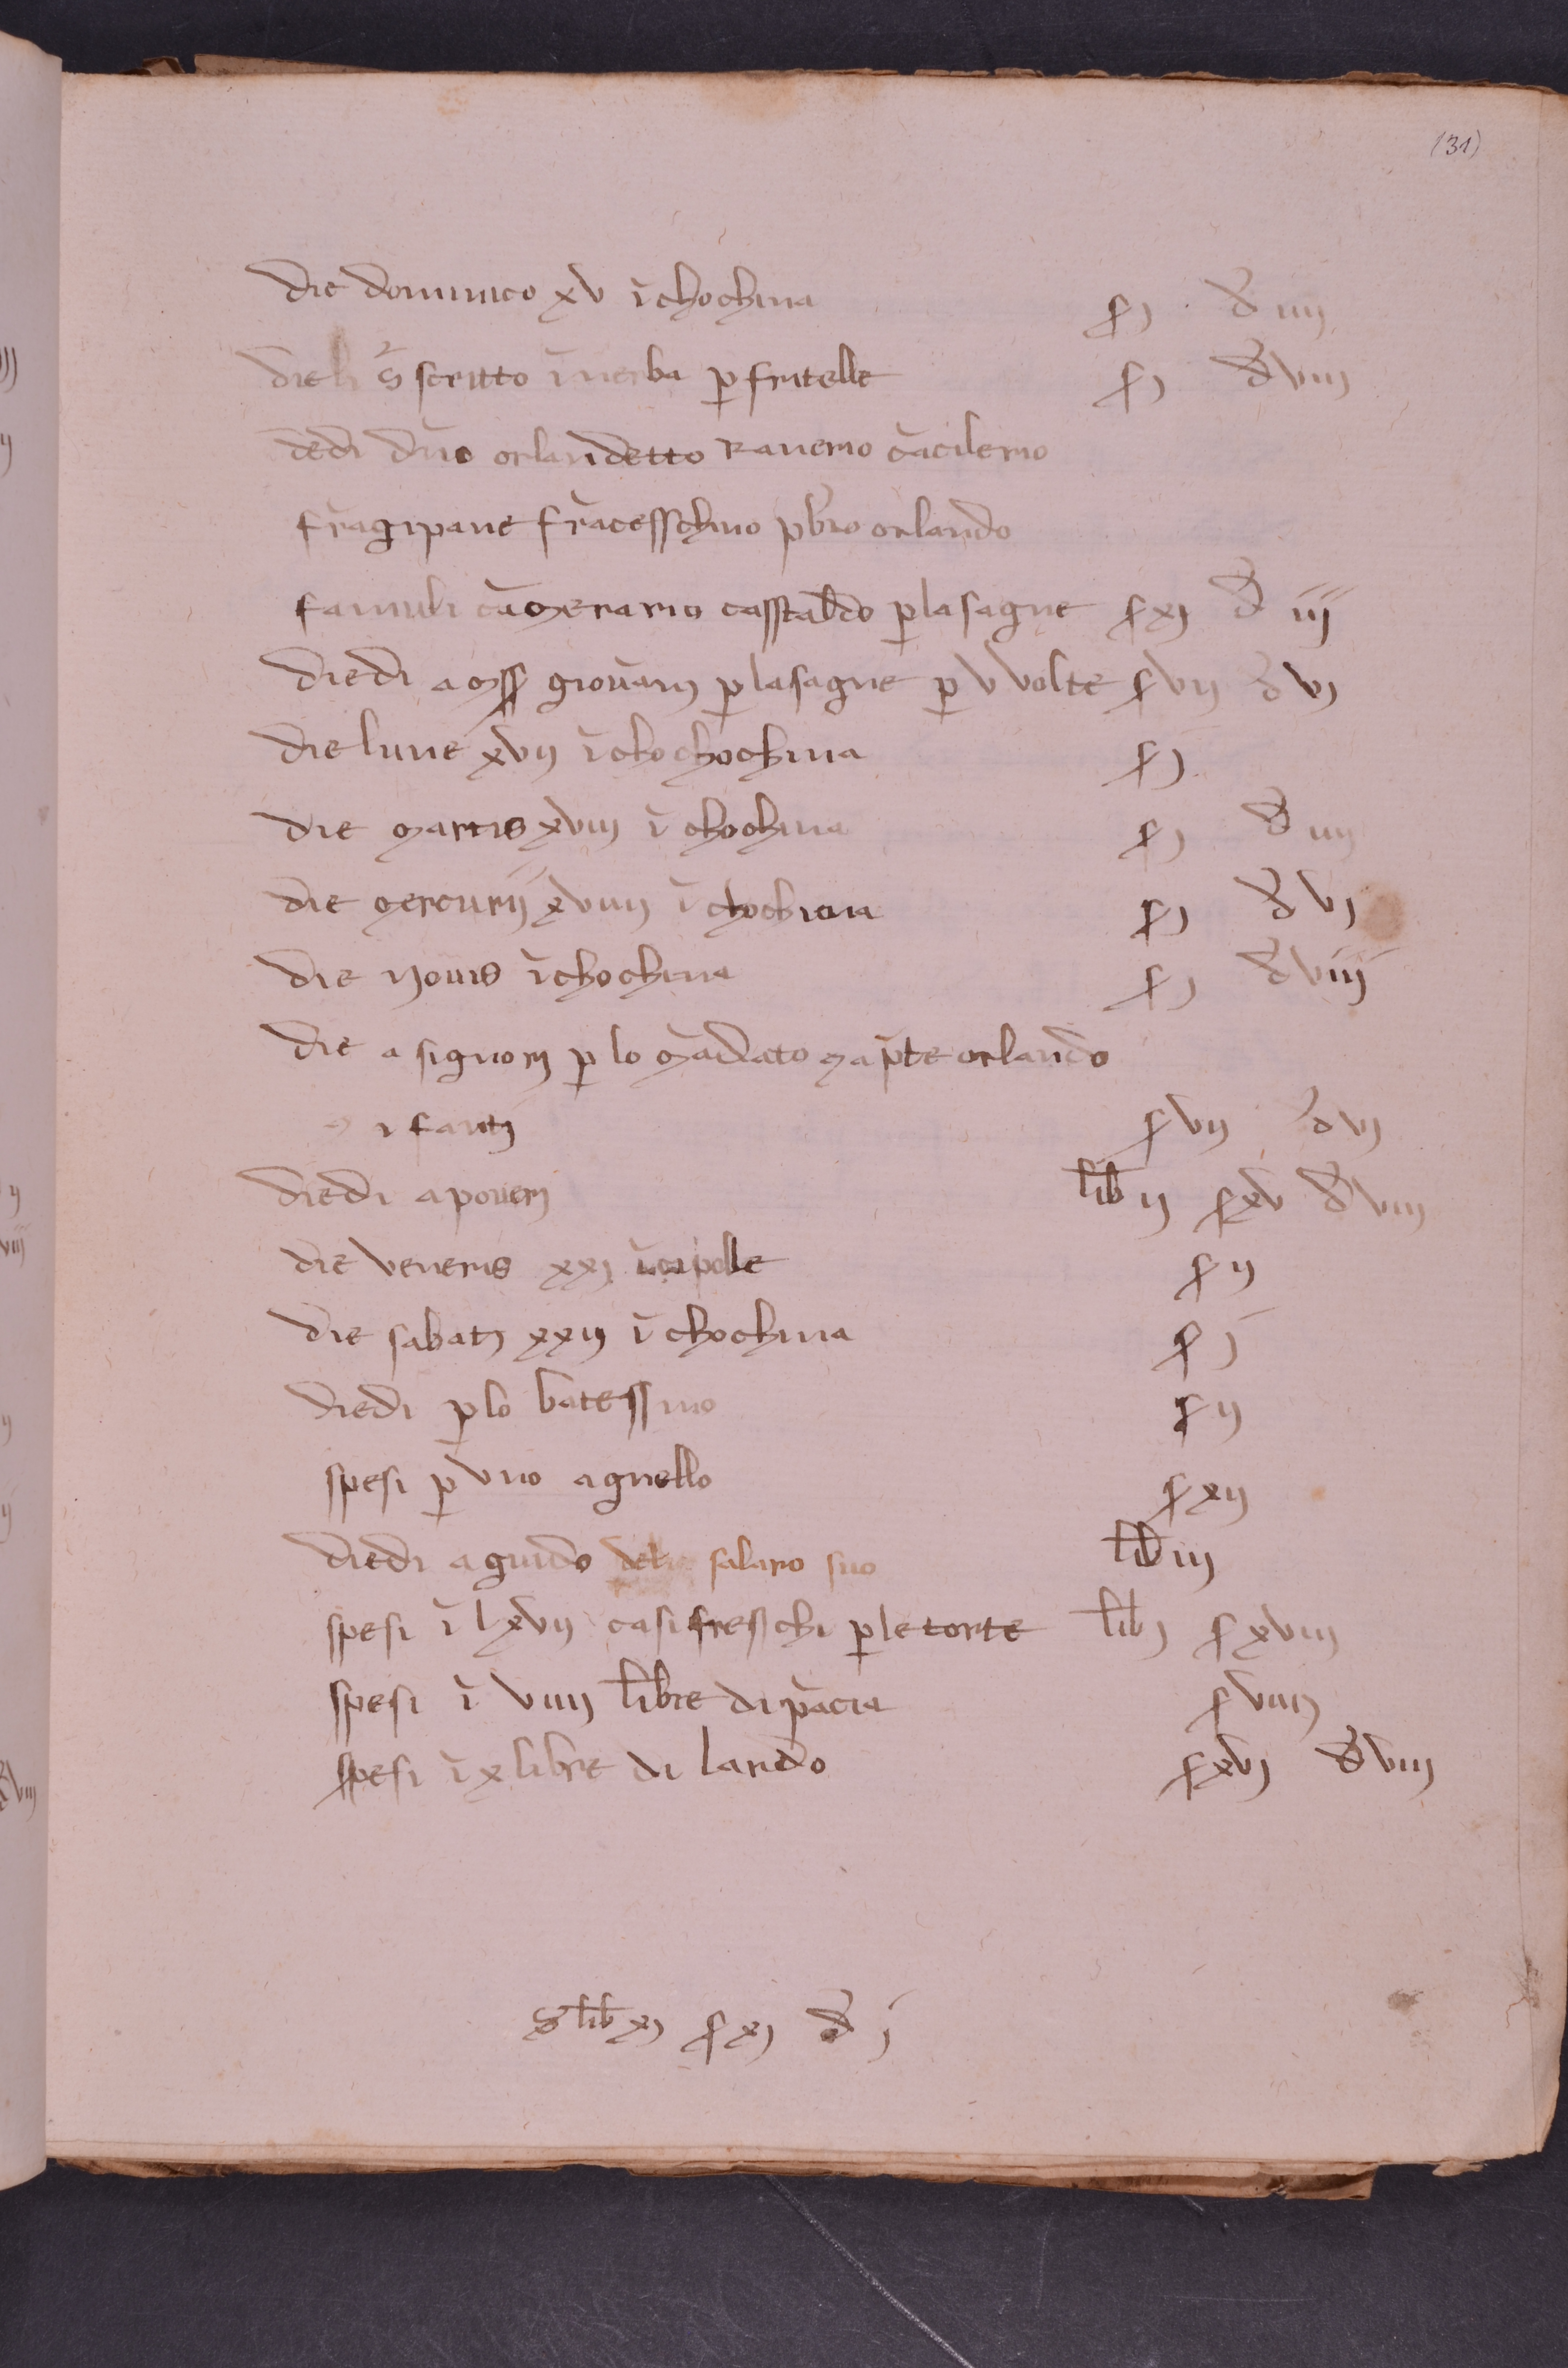 (31)
die dominico xv ĩ chochina ſ j đ iiij
die li s̄ scritto ĩ nerba ꝑ fritelle ſ j đ viij
dedi dño orlandetto Ranerio cãcilerio
frãgipane frãcesschino pb̃ro orlando
famuli cãmerario casstaldo ꝑ lasagne ſ xj đ iij
diedi a mss giovãnj ꝑ lasagne ꝑ v volte ſ vij đ vj
die lune xvij ĩ chochochina ſ j
die martis xviij ĩ chochina ſ j đ iiij
die mercurij xviiij ĩ chochina ſ j đ vj
die yovis ĩ chochina ſ j đ viij
die a signorj ꝑ lo mãdato map̃te orlando
i fantj ſ vij đ vj
diedi a poverj lib ij ſ xv đ viij
die veneris xxj ĩ cipolle ſ ij
die sabatj xxij ĩ chochina ſ j
diedi ꝑ lo batessmo ſ ij
spesi ꝑ uno agnello ſ xij
diedi a guido delo salaro suo lib iij
spesi ĩ lxvij casi freschi ꝑ le torte lib j ſ xviij
spesi ĩ viiij libre di pãcia ſ viiij
spesi ĩ x libre di lardo ſ xvj đ viij
S lib xj ſ xj đ j